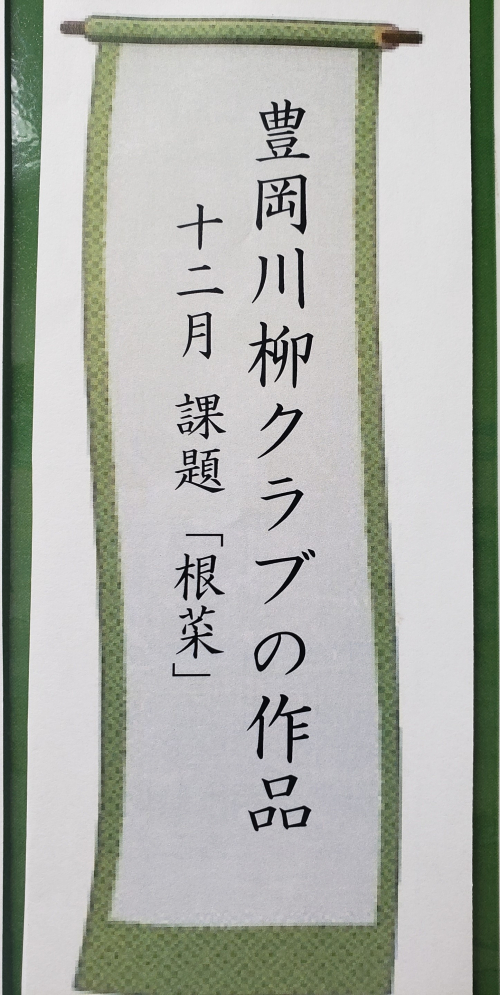 豊岡川柳クラブの作品
十二月 課題「根菜」